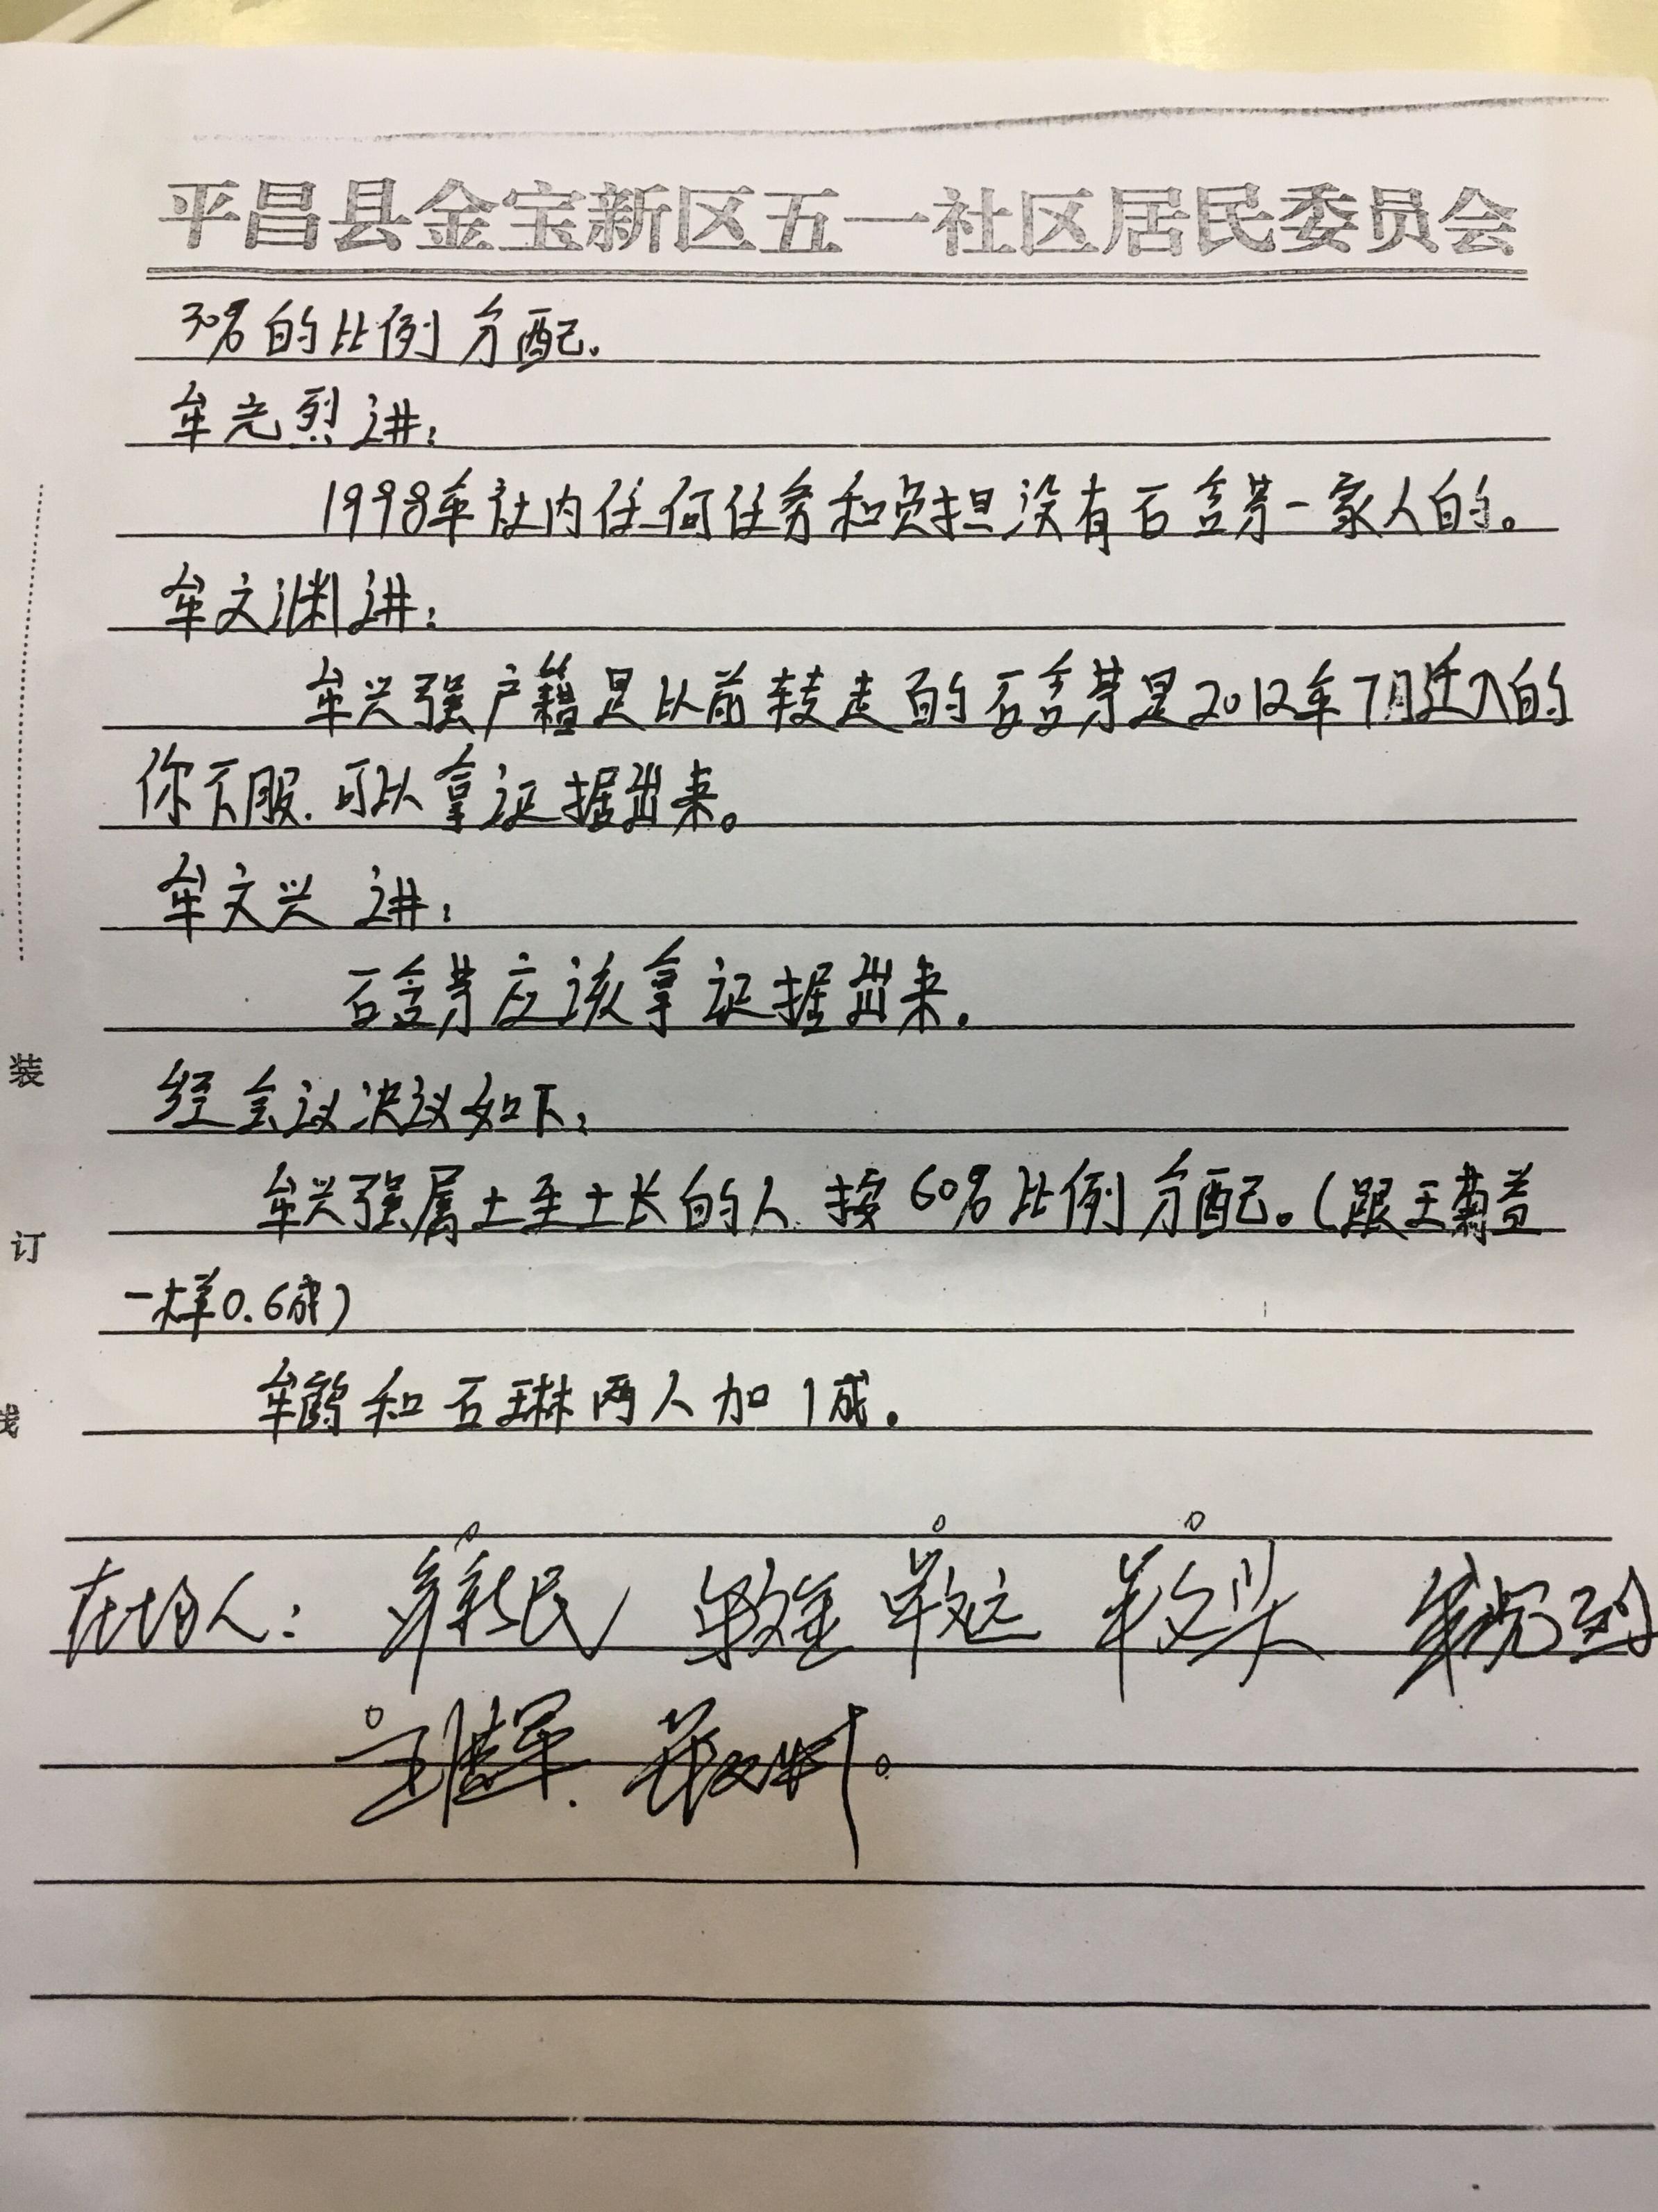 平昌县金宝新区五一社区居民委员会
30%的比例分配.
牟光烈讲:
1998年社内任何任务和负担没有石含芳一家人的。
牟文渊讲:
牟兴强户籍是以前转走的石含芳是2012年7月迁入的
你不服.可以拿证据出来。
牟文兴 讲:
石含芳应该拿证据出来.
经会议决议如下:
牟兴强属土生土长的人.按60%比例分配。(跟王菊
一样0.6成)
牟鹤和石琳两人加1成.
在场人:
装
订
线